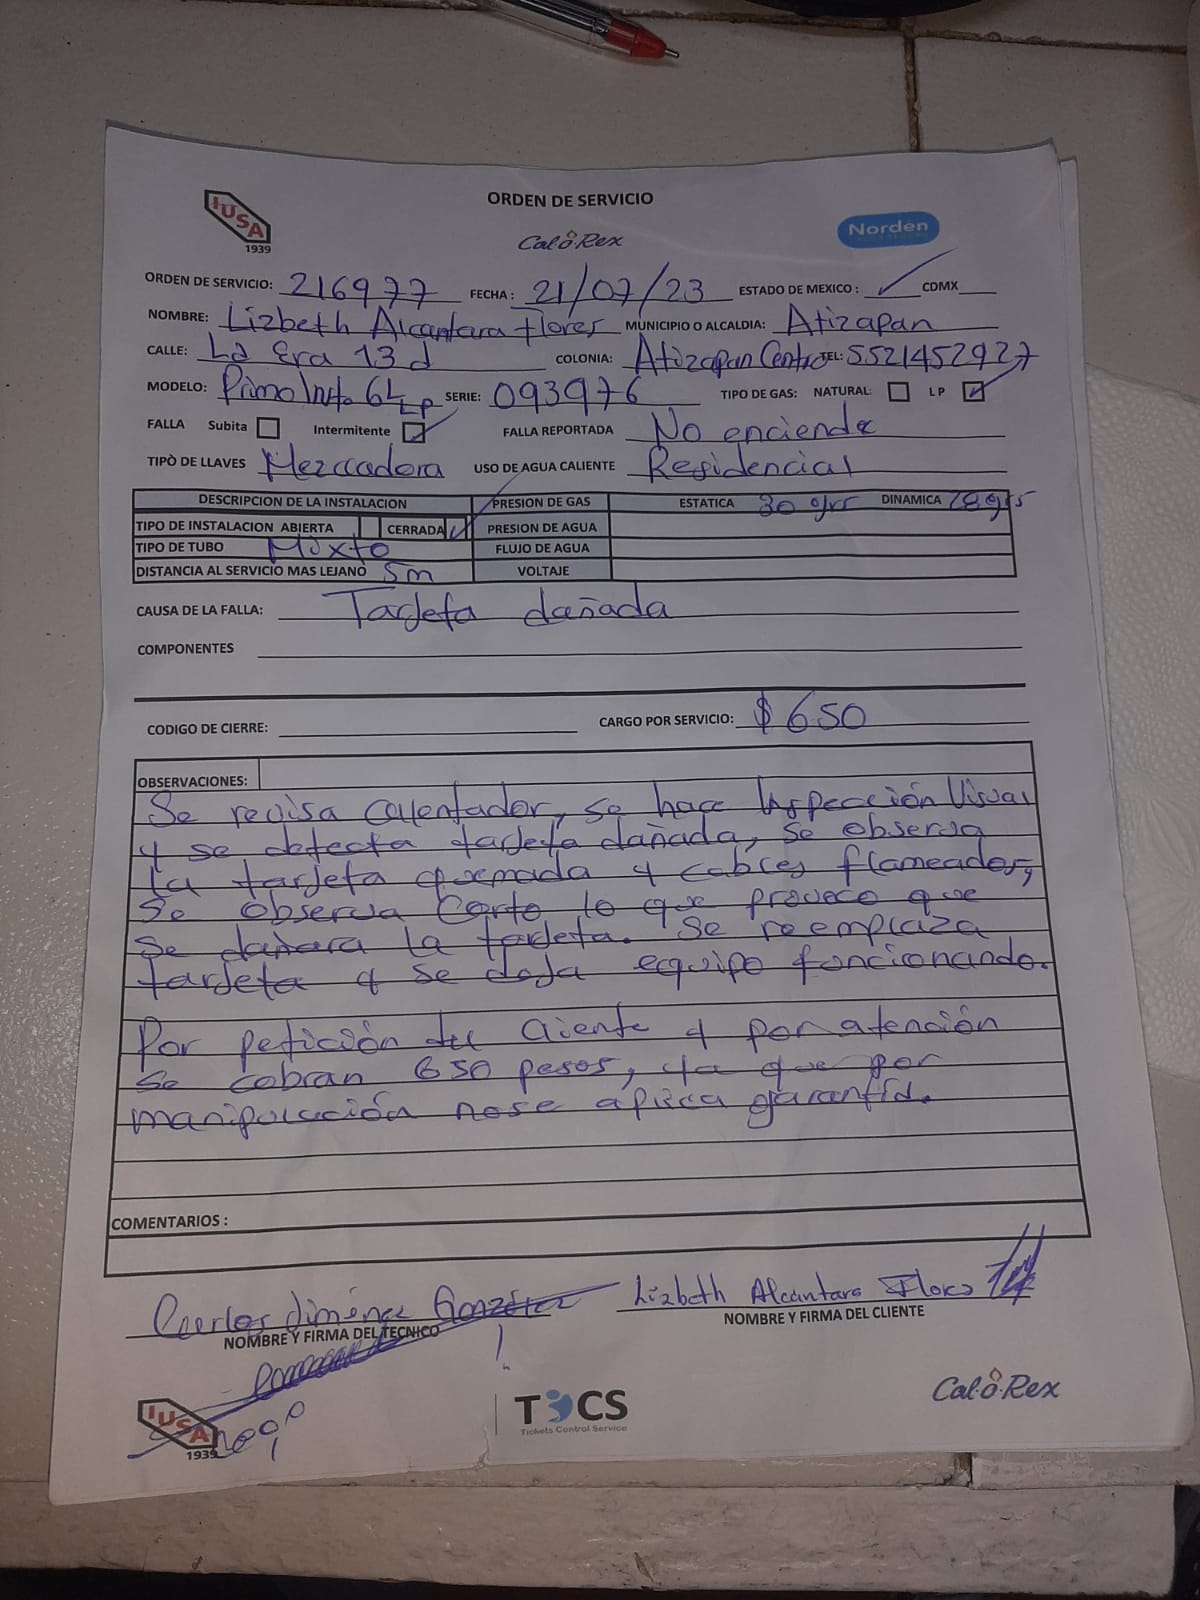 ORDEN DE SERVICIO
IUSA
1939
Cal-o-Rex
Nordën
ORDEN DE SERVICIO: 216977 FECHA: 21/07/23 ESTADO DE MEXICO: ✓ CDMX
NOMBRE: Lizbeth Alcantara Flores MUNICIPIO O ALCALDIA: Atizapan
CALLE: La Era 13 d COLONIA: Atizapan Centro TEL: 5521452927
MODELO: 6L LP SERIE: 093976 TIPO DE GAS: NATURAL: LP ✓
FALLA Subita Intermitente ✓ FALLA REPORTADA No enciende
TIPÒ DE LLAVES Mezcladora USO DE AGUA CALIENTE Residencial
DESCRIPCION DE LA INSTALACION PRESION DE GAS ESTATICA 30 grs DINAMICA 28grs
TIPO DE INSTALACION ABIERTA CERRADA ✓ PRESION DE AGUA
TIPO DE TUBO Mixto FLUJO DE AGUA
DISTANCIA AL SERVICIO MAS LEJANO 5m VOLTAJE
CAUSA DE LA FALLA: Tarjeta dañada
COMPONENTES
CODIGO DE CIERRE: CARGO POR SERVICIO: $ 650
OBSERVACIONES:
Se revisa calentador, se hace Inspección Visual
y se detecta tarjeta dañada, se observa
la tarjeta quemada y cables flameados,
se observa Corto lo que provoco que
se dañara la tarjeta. Se reemplaza
tarjeta y se deja equipo funcionando.
Por petición del cliente y por atención
se cobran 650 pesos, ya que por
manipulación no se aplica garantía.
COMENTARIOS :
Carlos Jiménez González
NOMBRE Y FIRMA DEL TECNICO
Lizbeth Alcantara Flores
NOMBRE Y FIRMA DEL CLIENTE
IUSA
1939
TCS
Tickets Control Service
Cal-o-Rex